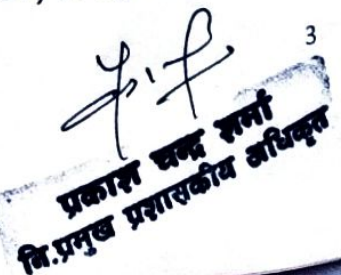 3
प्रकाश चन्द्र शर्मा
नि.प्रमुख प्रशासकीय अधिकृत